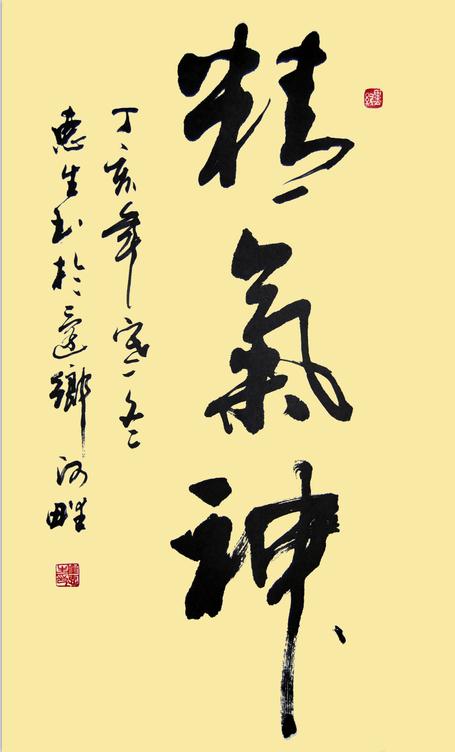 精氣神
丁亥年寒冬
惠生书於還鄉河畔